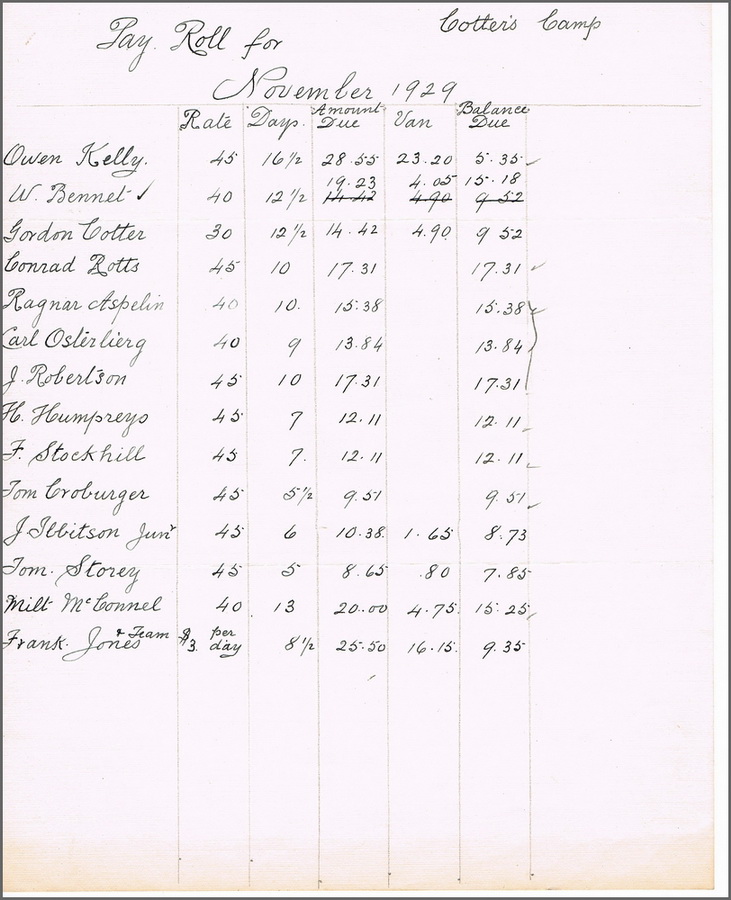 Cotter's Camp
Pay Roll for
November 1929
Rate Days. Amount Due Van Balance Due
Owen Kelly. 45 16½ 28.55 23.20 5.35
19.23 4.05 15.18
W. Bennet ✓ 40 12½ 14.42 4.90 9 52
Gordon Cotter 30 12½ 14.42 4.90 9 52
Conrad Rotts 45 10 17.31 17.31
Ragnar Aspelin 40 10. 15.38 15.38
Carl Osterlierg 40 9 13.84 13.84
J. Robertson 45 10 17.31 17.31
H. Humpreys 45 7 12.11 12.11
F. Stockhill 45 7. 12.11 12.11
Tom Croburger 45 5½ 9.51 9.51
J. Ibbitson Junr 45 6 10.38 1.65 8.73
Tom. Storey 45 5 8.65 .80 7.85
Milt McConnel 40 13 20.00 4.75 15.25
Frank. Jones & Team $3. per day 8½ 25.50 16.15. 9.35